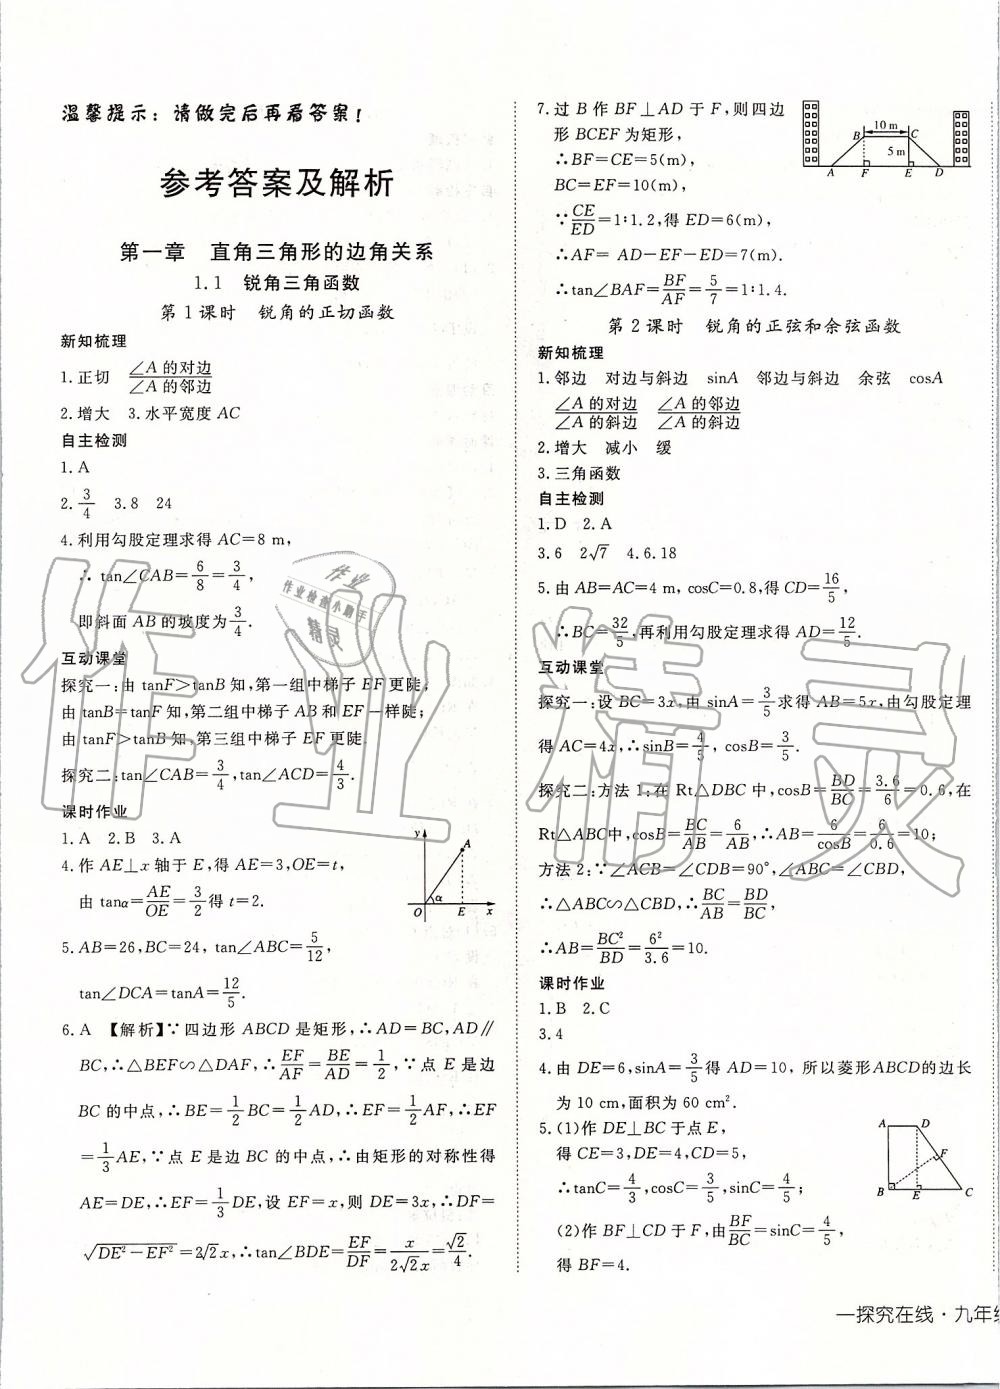 温馨提示：请做完后再看答案！
参考答案及解析
第一章　直角三角形的边角关系
1.1　锐角三角函数
第1课时　锐角的正切函数
新知梳理
1.正切　∠A的对边/∠A的邻边
2.增大　3.水平宽度AC
自主检测
1.A
2.3/4　3.8　24
4.利用勾股定理求得AC=8 m,
∴tan∠CAB=6/8=3/4,
即斜面AB的坡度为3/4.
互动课堂
探究一:由tanF>tanB知,第一组中梯子EF更陡;
由tanB=tanF知,第二组中梯子AB和EF一样陡;
由tanF>tanB知,第三组中梯子EF更陡.
探究二:tan∠CAB=3/4,tan∠ACD=4/3.
课时作业
1.A　2.B　3.A
4.作AE⊥x轴于E,得AE=3,OE=t,
由tanα=AE/OE=3/2得t=2.
y
A
α
O E x
5.AB=26,BC=24, tan∠ABC=5/12,
tan∠DCA=tanA=12/5.
6.A　【解析】∵四边形ABCD是矩形,∴AD=BC,AD∥
BC,∴△BEF∽△DAF,∴EF/AF=BE/AD=1/2,∵点E是边
BC的中点,∴BE=1/2BC=1/2AD,∴EF=1/2AF,∴EF
=1/3AE,∵点E是边BC的中点,∴由矩形的对称性得
AE=DE,∴EF=1/3DE,设EF=x,则DE=3x,∴DF=
√(DE²-EF²)=2√2x,∴tan∠BDE=EF/DF=x/(2√2x)=√2/4.
7.过B作BF⊥AD于F,则四边
形BCEF为矩形,
∴BF=CE=5(m),
BC=EF=10(m),
∵CE/ED=1∶1.2,得ED=6(m),
∴AF=AD-EF-ED=7(m).
∴tan∠BAF=BF/AF=5/7=1∶1.4.
10 m
B C
5 m
A F E D
第2课时　锐角的正弦和余弦函数
新知梳理
1.邻边　对边与斜边　sinA　邻边与斜边　余弦　cosA
∠A的对边/∠A的斜边　∠A的邻边/∠A的斜边
2.增大　减小　缓
3.三角函数
自主检测
1.D　2.A
3.6　2√7　4.6.18
5.由AB=AC=4 m, cosC=0.8,得CD=16/5,
∴BC=32/5,再利用勾股定理求得AD=12/5.
互动课堂
探究一:设BC=3x,由sinA=3/5求得AB=5x,由勾股定理
得AC=4x,∴sinB=4/5, cosB=3/5.
探究二:方法1:在Rt△DBC中,cosB=BD/BC=3.6/6=0.6,在
Rt△ABC中,cosB=BC/AB=6/AB,∴AB=6/cosB=6/0.6=10;
方法2:∵∠ACB=∠CDB=90°,∠ABC=∠CBD,
∴△ABC∽△CBD,∴BC/AB=BD/BC,
∴AB=BC²/BD=6²/3.6=10.
课时作业
1.B　2.C
3.4
4.由DE=6,sinA=3/5得AD=10,所以菱形ABCD的边长
为10 cm,面积为60 cm².
5.(1)作DE⊥BC于点E,
得CE=3,DE=4,CD=5,
∴tanC=4/3,cosC=3/5,sinC=4/5;
(2)作BF⊥CD于F,由BF/BC=sinC=4/5,
得BF=4.
A D
F
B E C
一探究在线·九年级
作业精灵
作业
作业检查小助手
精灵